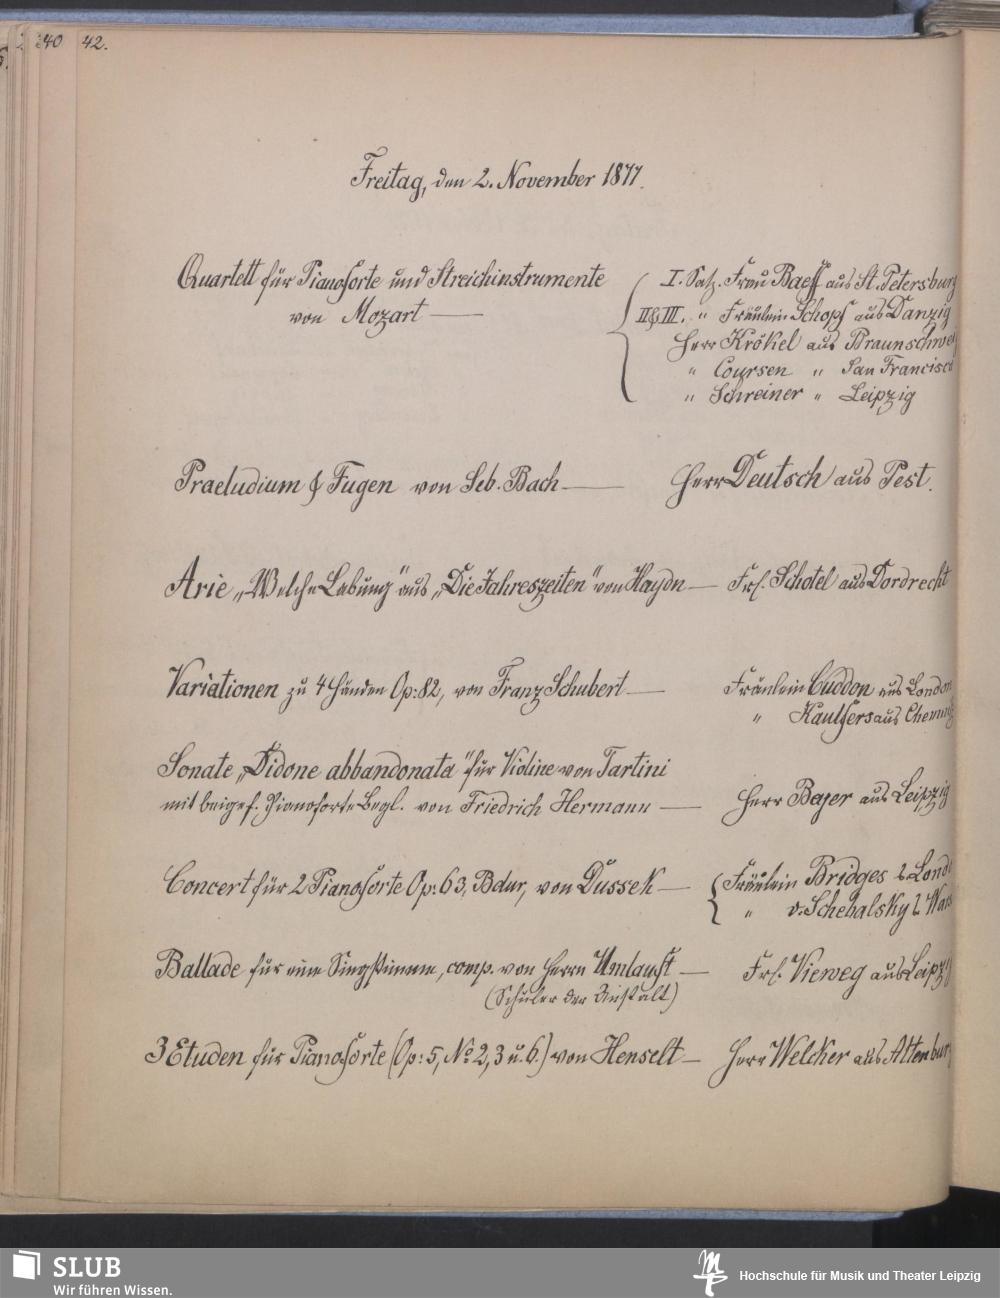 40
42.
Freitag, den 2. November 1877.
Quartett für Pianoforte und Streichinstrumente
von Mozart —
I. Satz. Frau Baeff aus St. Petersburg
II & III. " Fräulein Schopf aus Danzig
Herr Krökel aus Braunschwei
" Coursen " San Francisco
" Schreiner " Leipzig
Praeludium & Fugen von Seb. Bach — Herr Deutsch aus Pest.
Arie „Welche Labung" aus „Die Jahreszeiten" von Haydn — Frl. Schotel aus Dordrecht
Variationen zu 4 Händen Op: 82, von Franz Schubert — Fräulein Cuddon aus London
" aus Chemnitz
Sonate „Didone abbandonata" für Violine von Tartini
mit beigef. Pianoforte Begl. von Friedrich Hermann — Herr Beyer aus Leipzig
Concert für 2 Pianoforte Op: 63, Bdur, von Dussek — Fräulein Bridges a. Lond
" v. Schebalsky a. Wars
Ballade für eine Singstimme, comp. von Herrn Umlauft — Frl. Vieweg aus Leipzig
(Schüler der Anstalt)
3 Etuden für Pianoforte (Op: 5, No 2, 3 u. 6.) von Henselt — Herr Welcker aus Altenburg
SLUB
Wir führen Wissen.
Hochschule für Musik und Theater Leipzig